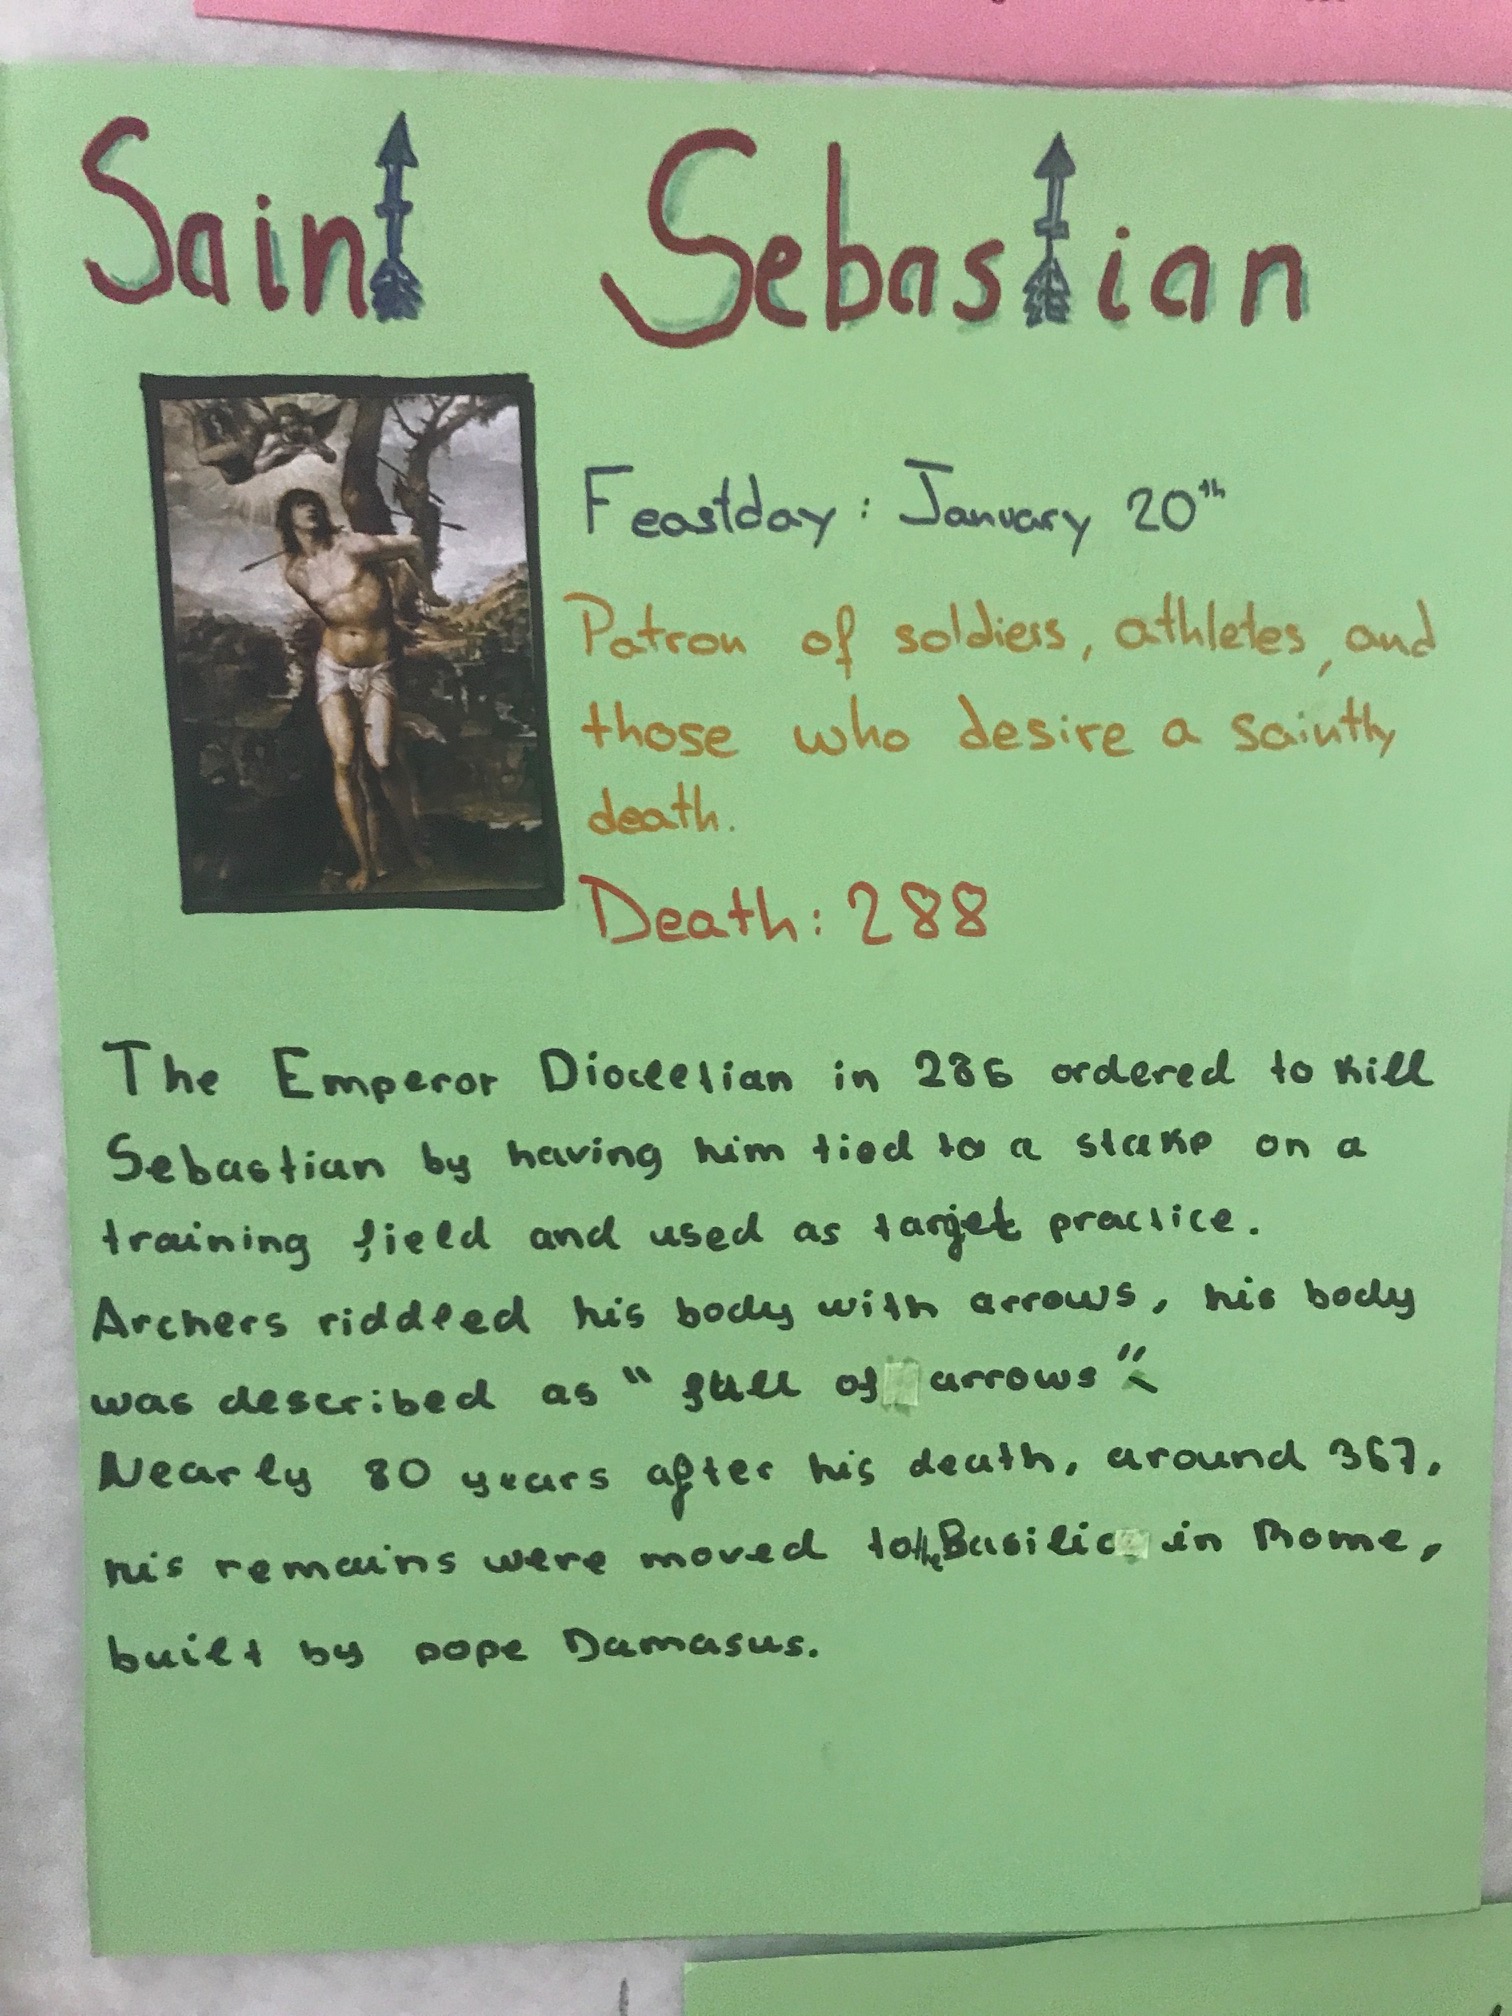 Saint Sebastian
Feastday: January 20th
Patron of soldiers, athletes, and
those who desire a saintly
death.
Death: 288
The Emperor Diocletian in 286 ordered to kill
Sebastian by having him tied to a stake on a
training field and used as target practice.
Archers riddled his body with arrows, his body
was described as "full of arrows".
Nearly 80 years after his death, around 367,
his remains were moved to the Basilica in Rome,
built by pope Damasus.